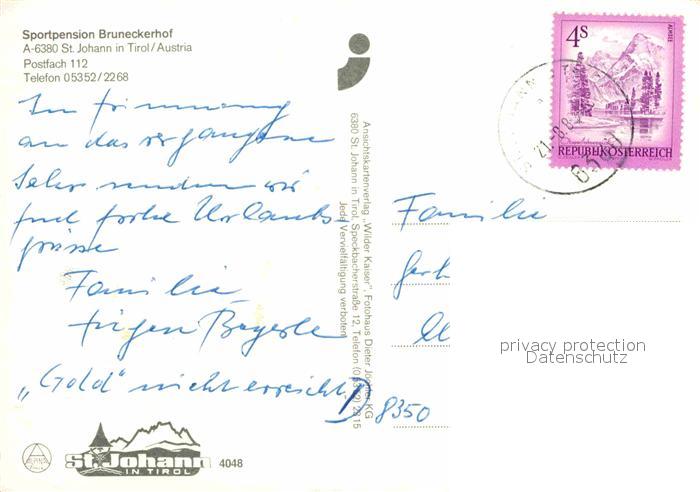 Sportpension Bruneckerhof
A-6380 St. Johann in Tirol/Austria
Postfach 112
Telefon 05352/2268
In Erinnerung
an das vergangene
Jahr senden wir
frohe Urlaubs-
grüsse
Familie
Jürgen Bayerle
„Gold" nicht erreicht
Ansichtskartenverlag „Wilder Kaiser", Fotohaus Dieter KG
6380 St. Johann in Tirol, Speckbacherstraße 12, Telefon
Jede Vervielfältigung verboten
4S
ALMSEE
REPUBLIK ÖSTERREICH
6380
Familie
D 8350
privacy protection
Datenschutz
St. Johann
IN TIROL
4048